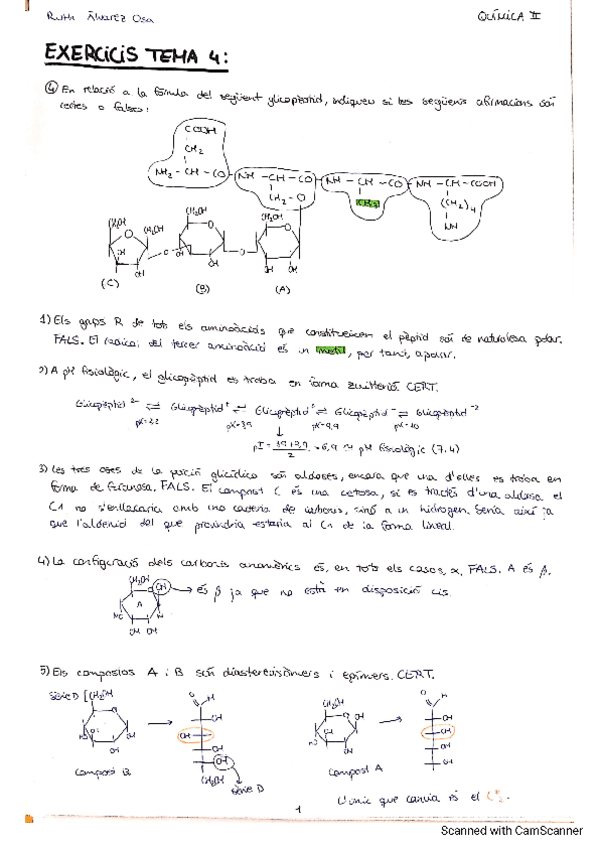 Ruth Álvarez Osa
QUÍMICA II
EXERCICIS TEMA 4:
④ En relació a la fórmula del següent glicopèptid, indiqueu si les següents afirmacions són
certes o falses:
COOH
CH2
NH2 - CH - CO NH - CH - CO NH - CH - CO NH - CH - COOH
CH2 - O CH3 (CH2)4
NH
CH2OH CH2OH CH2OH CH2OH
O O O
OH OH OH
OH OH OH
(C) (B) (A)
1) Els grups R de tots els aminoàcids que constitueixen el pèptid són de naturalesa polar.
FALS. El radical del tercer aminoàcid és un metil, per tant, apolar.
2) A pH fisiològic, el glicopèptid es troba en forma zwitterió. CERT.
Glicopèptid ⇌ Glicopèptid ⇌ Glicopèptid ⇌ Glicopèptid ⇌ Glicopèptid
pK=2,2 pK=3,9 pK=9,9 pK=10
pI = 3,9+9,9 / 2 = 6,9 ≈ pH fisiològic (7.4)
3) Les tres oses de la porció glicídica són aldoses, encara que una d'elles es troba en
forma de furanosa. FALS. El compost C és una cetosa, si es tractés d'una aldosa el
C1 no s'enllaçaria amb una cadena de carbonis, sinó a un hidrogen. Seria així ja
que l'aldehid del que provindria estaria al C1 de la forma lineal.
4) La configuració dels carbonis anomèrics és, en tots els casos, α. FALS. A és β.
CH2OH
O OH → és β ja que no està en disposició cis.
A
HO
OH OH
5) Els compostos A i B són diastereoisòmers i epímers. CERT.
Sèrie D CH2OH
O H
OH
CH2OH
Sèrie D
Compost B
CH2OH
O H
OH
Compost A
L'únic que canvia és el C
1
Scanned with CamScanner